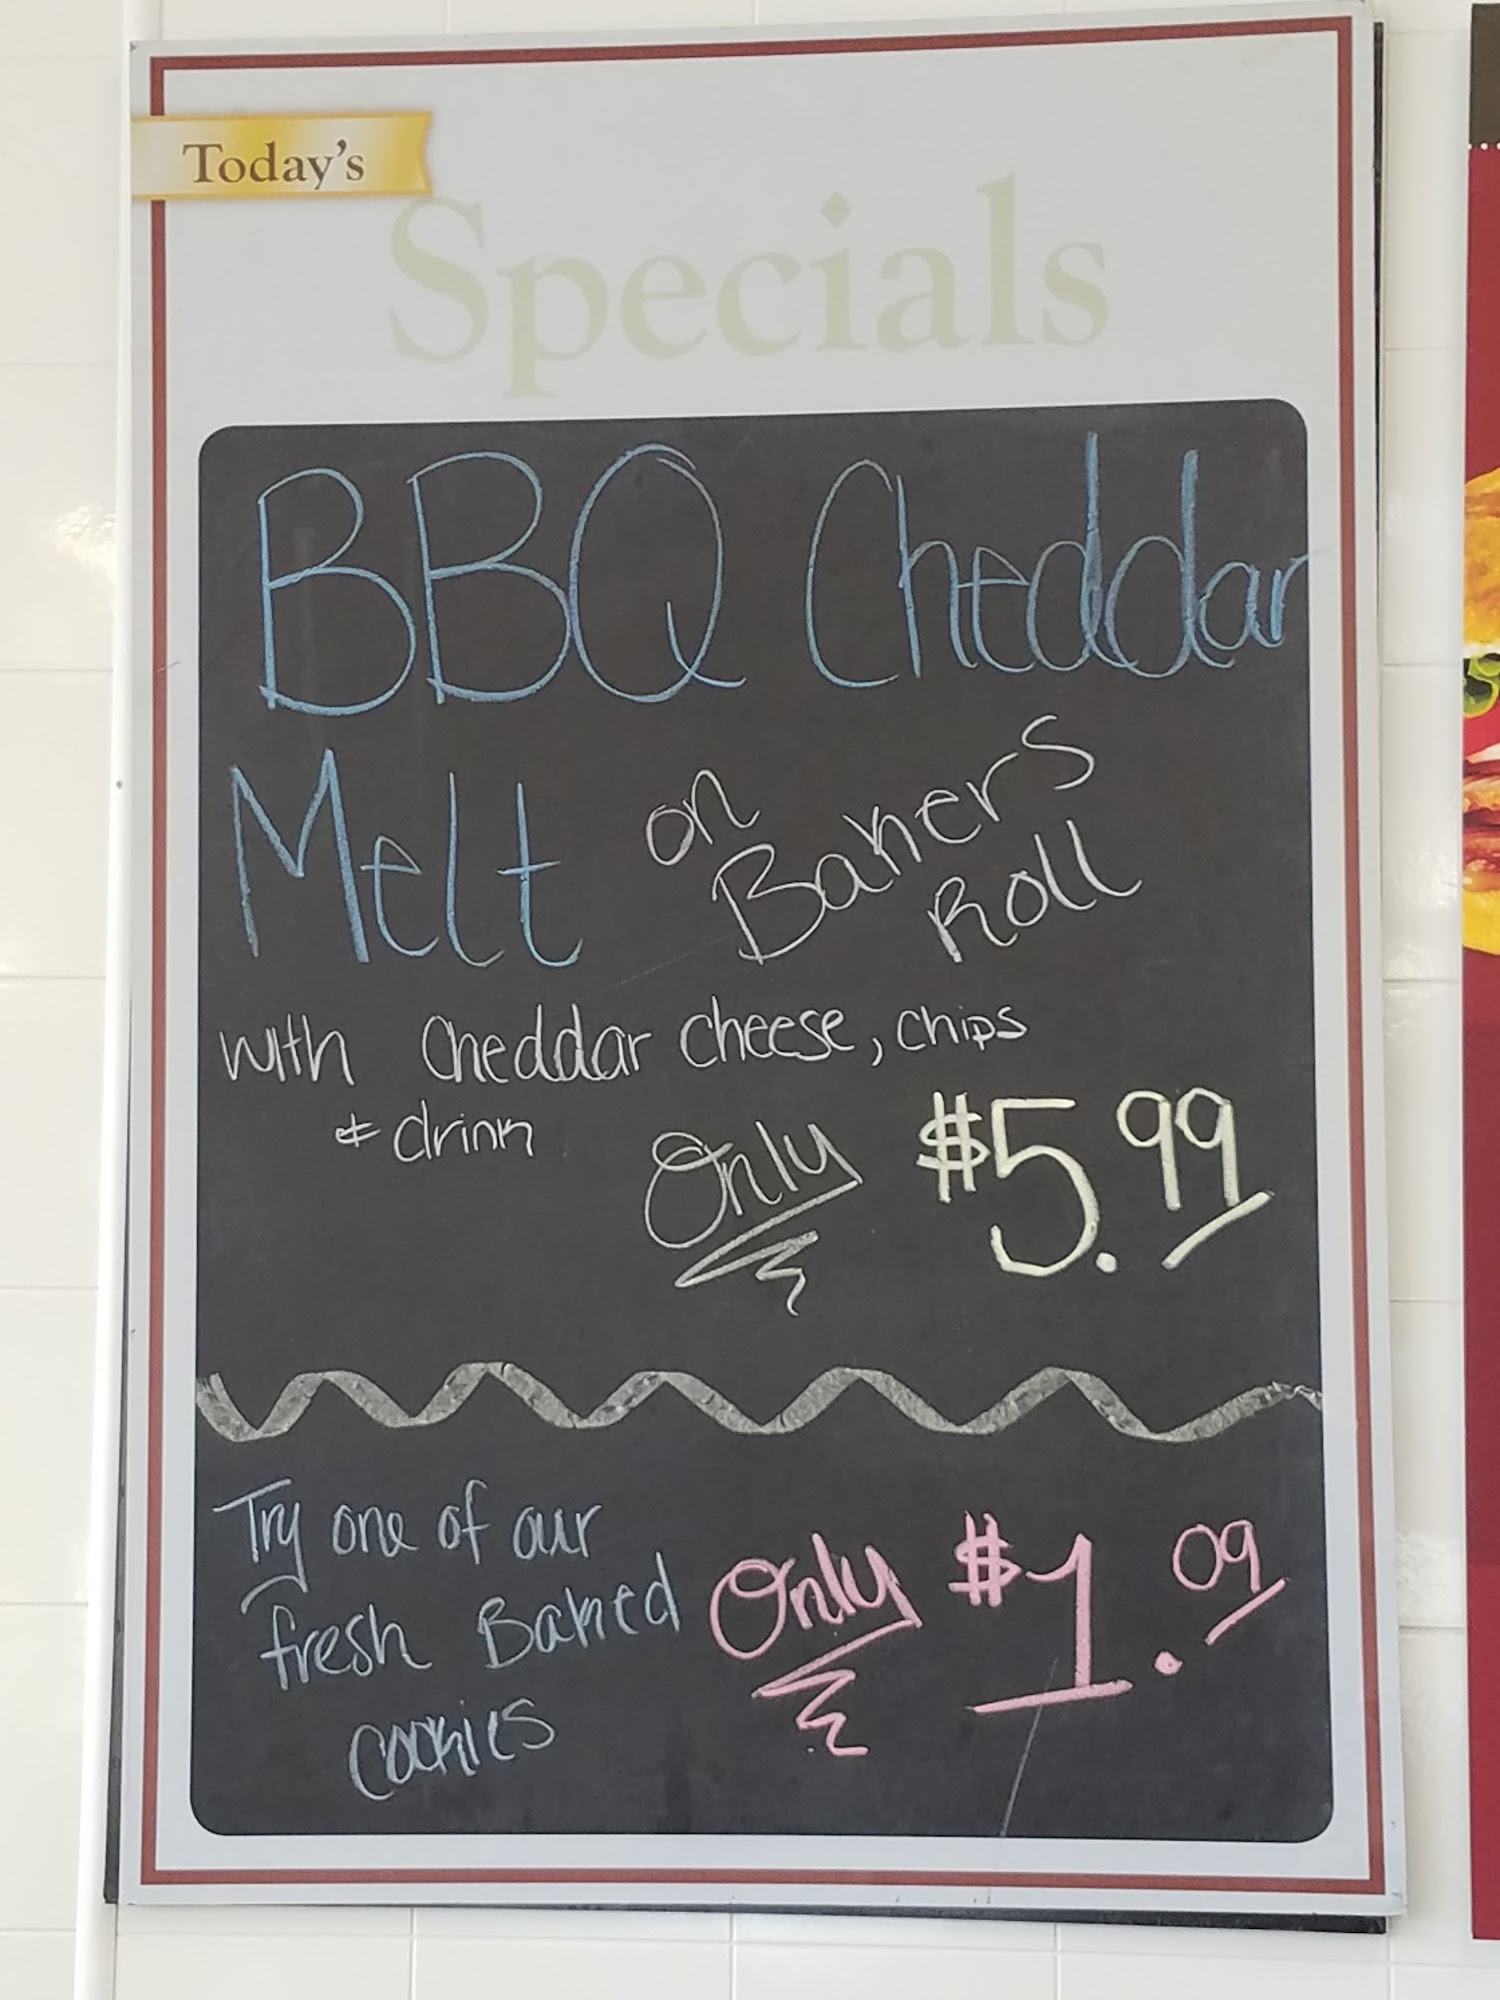 Today's
Specials
BBQ Cheddar
Melt on Bakers
Roll
with Cheddar cheese, chips
& drink Only $5.99
Try one of our
fresh Baked Only $1.09
cookies